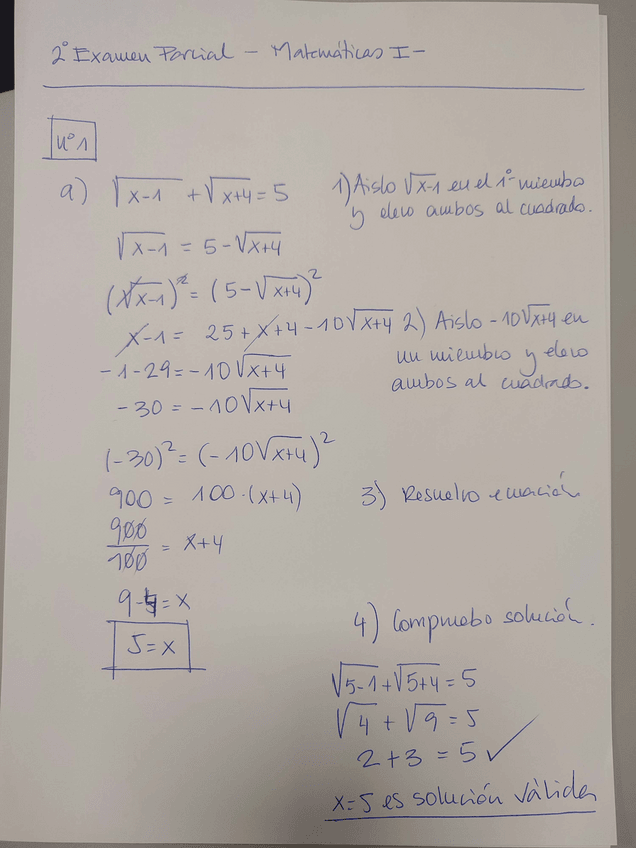 2º Examen Parcial - Matemáticas I -
nº 1
a) √(x-1) + √(x+4) = 5
1) Aislo √(x-1) en el 1º miembro
y elevo ambos al cuadrado.
√(x-1) = 5 - √(x+4)
(√(x-1))² = (5 - √(x+4))²
x - 1 = 25 + x + 4 - 10√(x+4)
2) Aislo -10√(x+4) en
un miembro y elevo
ambos al cuadrado.
-1 - 29 = -10√(x+4)
-30 = -10√(x+4)
(-30)² = (-10√(x+4))²
900 = 100·(x+4)
3) Resuelvo ecuación
900/100 = x+4
9 - 4 = x
5 = x
4) Compruebo solución.
√(5-1) + √(5+4) = 5
√4 + √9 = 5
2 + 3 = 5 ✓
x=5 es solución válida